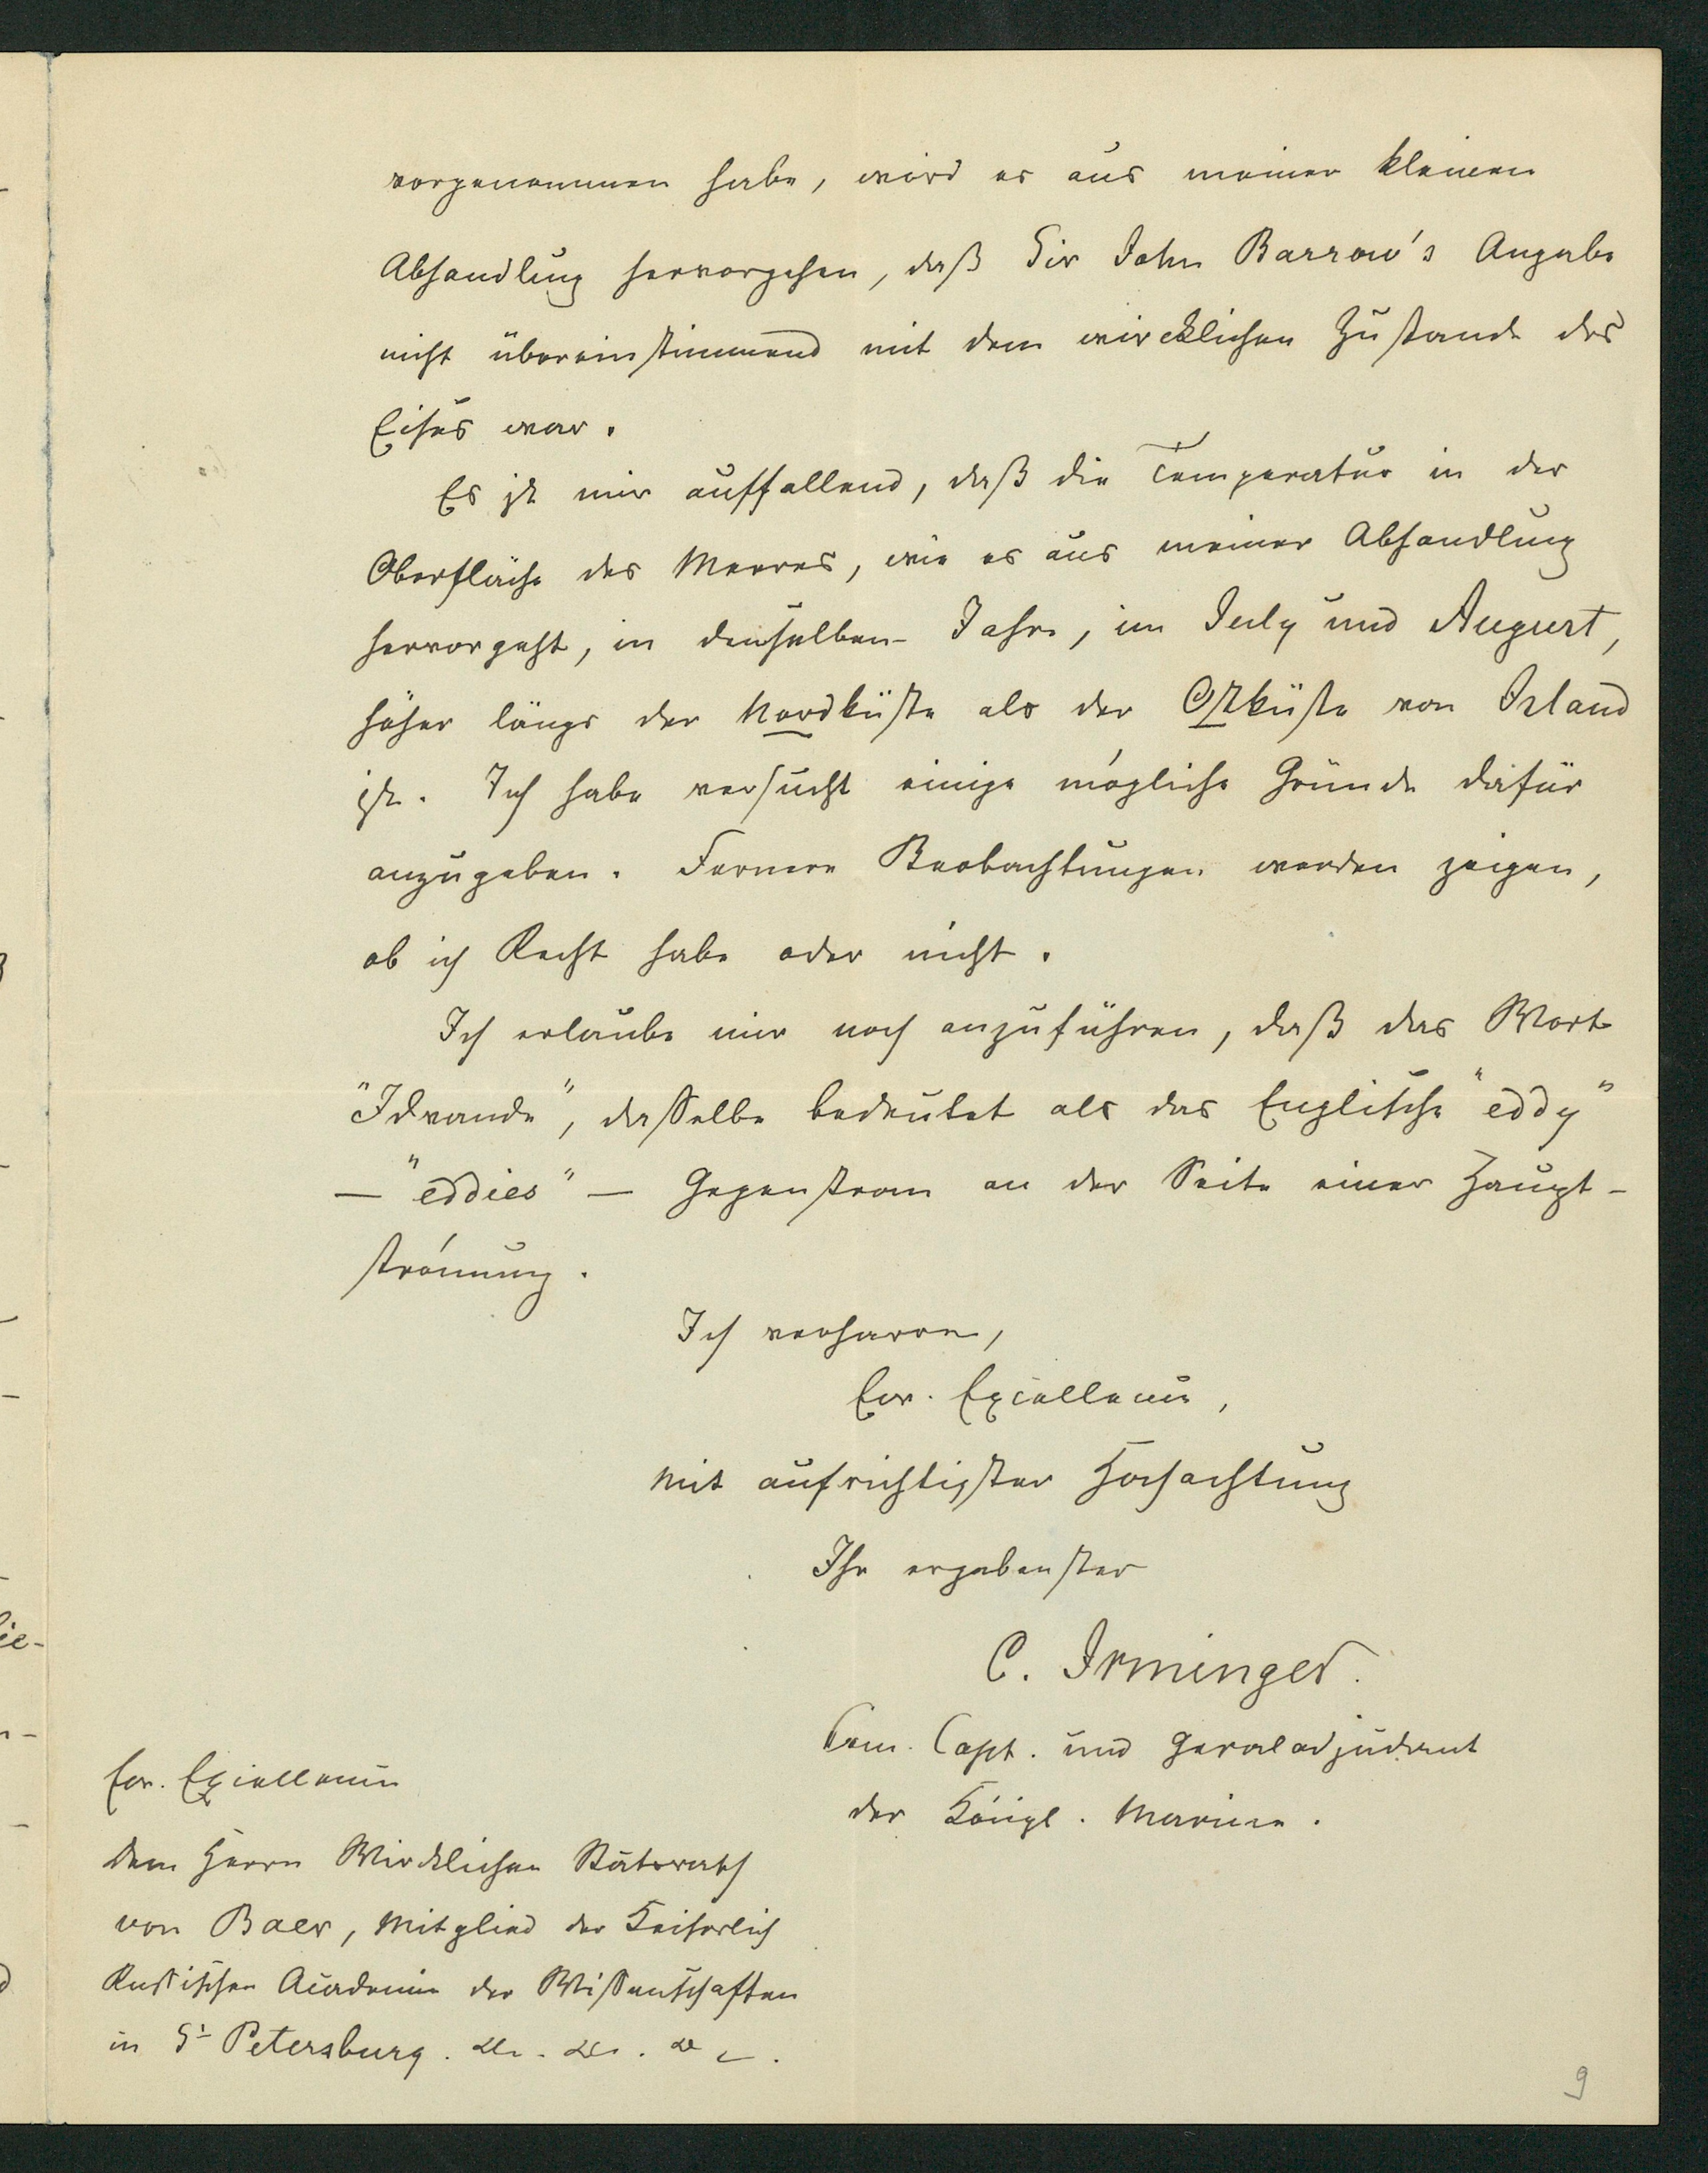 vorgenommen habe, wird es aus meiner kleinen
Abhandlung hervorgehen, daß Sir John Barrow's Angabe
nicht übereinstimmend mit dem wircklichen Zustande des
Eises war.
Es ist mir auffallend, daß die Temperatur in der
Oberfläche des Meeres, wie es aus meiner Abhandlung
hervorgeht, in denselben Jahre, im July und August,
höher längs der Nordküste als der Ostküste von Island
ist. Ich habe versucht einige mögliche Gründe dafür
anzugeben. Fernere Beobachtungen werden zeigen,
ob ich Recht habe oder nicht.
Ich erlaube mir noch anzuführen, daß das Wort
"Idvande", dasselbe bedeutet als das Englische "eddy"
— "eddies" — Gegenstrom an der Seite einer Haupt-
strömung.
Ich verharre,
Ew. Excellence,
mit aufrichtigster Hochachtung
Ihr ergebenster
C. Irminger.
Com. Capt. und Generaladjudant
der Königl. Marine.
Ew. Excellence
dem Herrn Wircklichen Statsrath
von Baer, Mitglied der Keiserlich
Russischen Academie der Wissenschaften
in St Petersburg. &c. &c. &c.
9